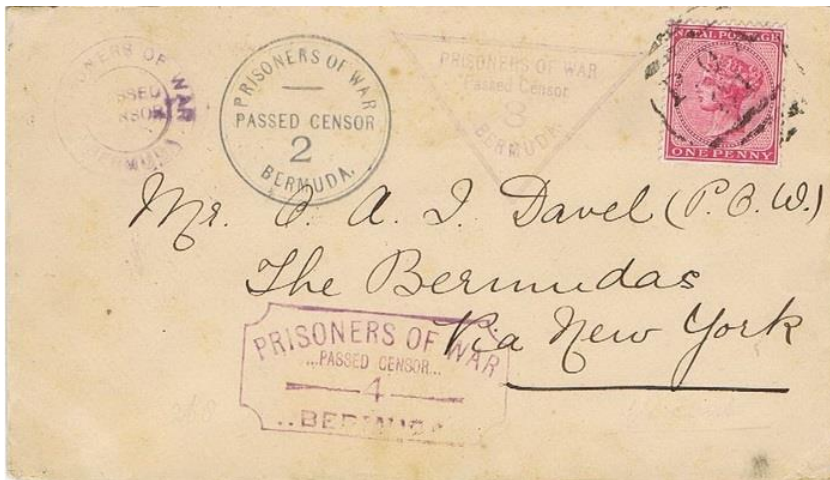 PRISONERS OF WAR
PASSED CENSOR
BERMUDA
PRISONERS OF WAR
PASSED CENSOR
2
BERMUDA.
PRISONERS OF WAR
Passed Censor
3
BERMUDA.
NATAL POSTAGE
ONE PENNY
Mr. O. A. I. Davel (P.O.W.)
The Bermudas
Via New York
PRISONERS OF WAR
...PASSED CENSOR...
4
..BERMUDA